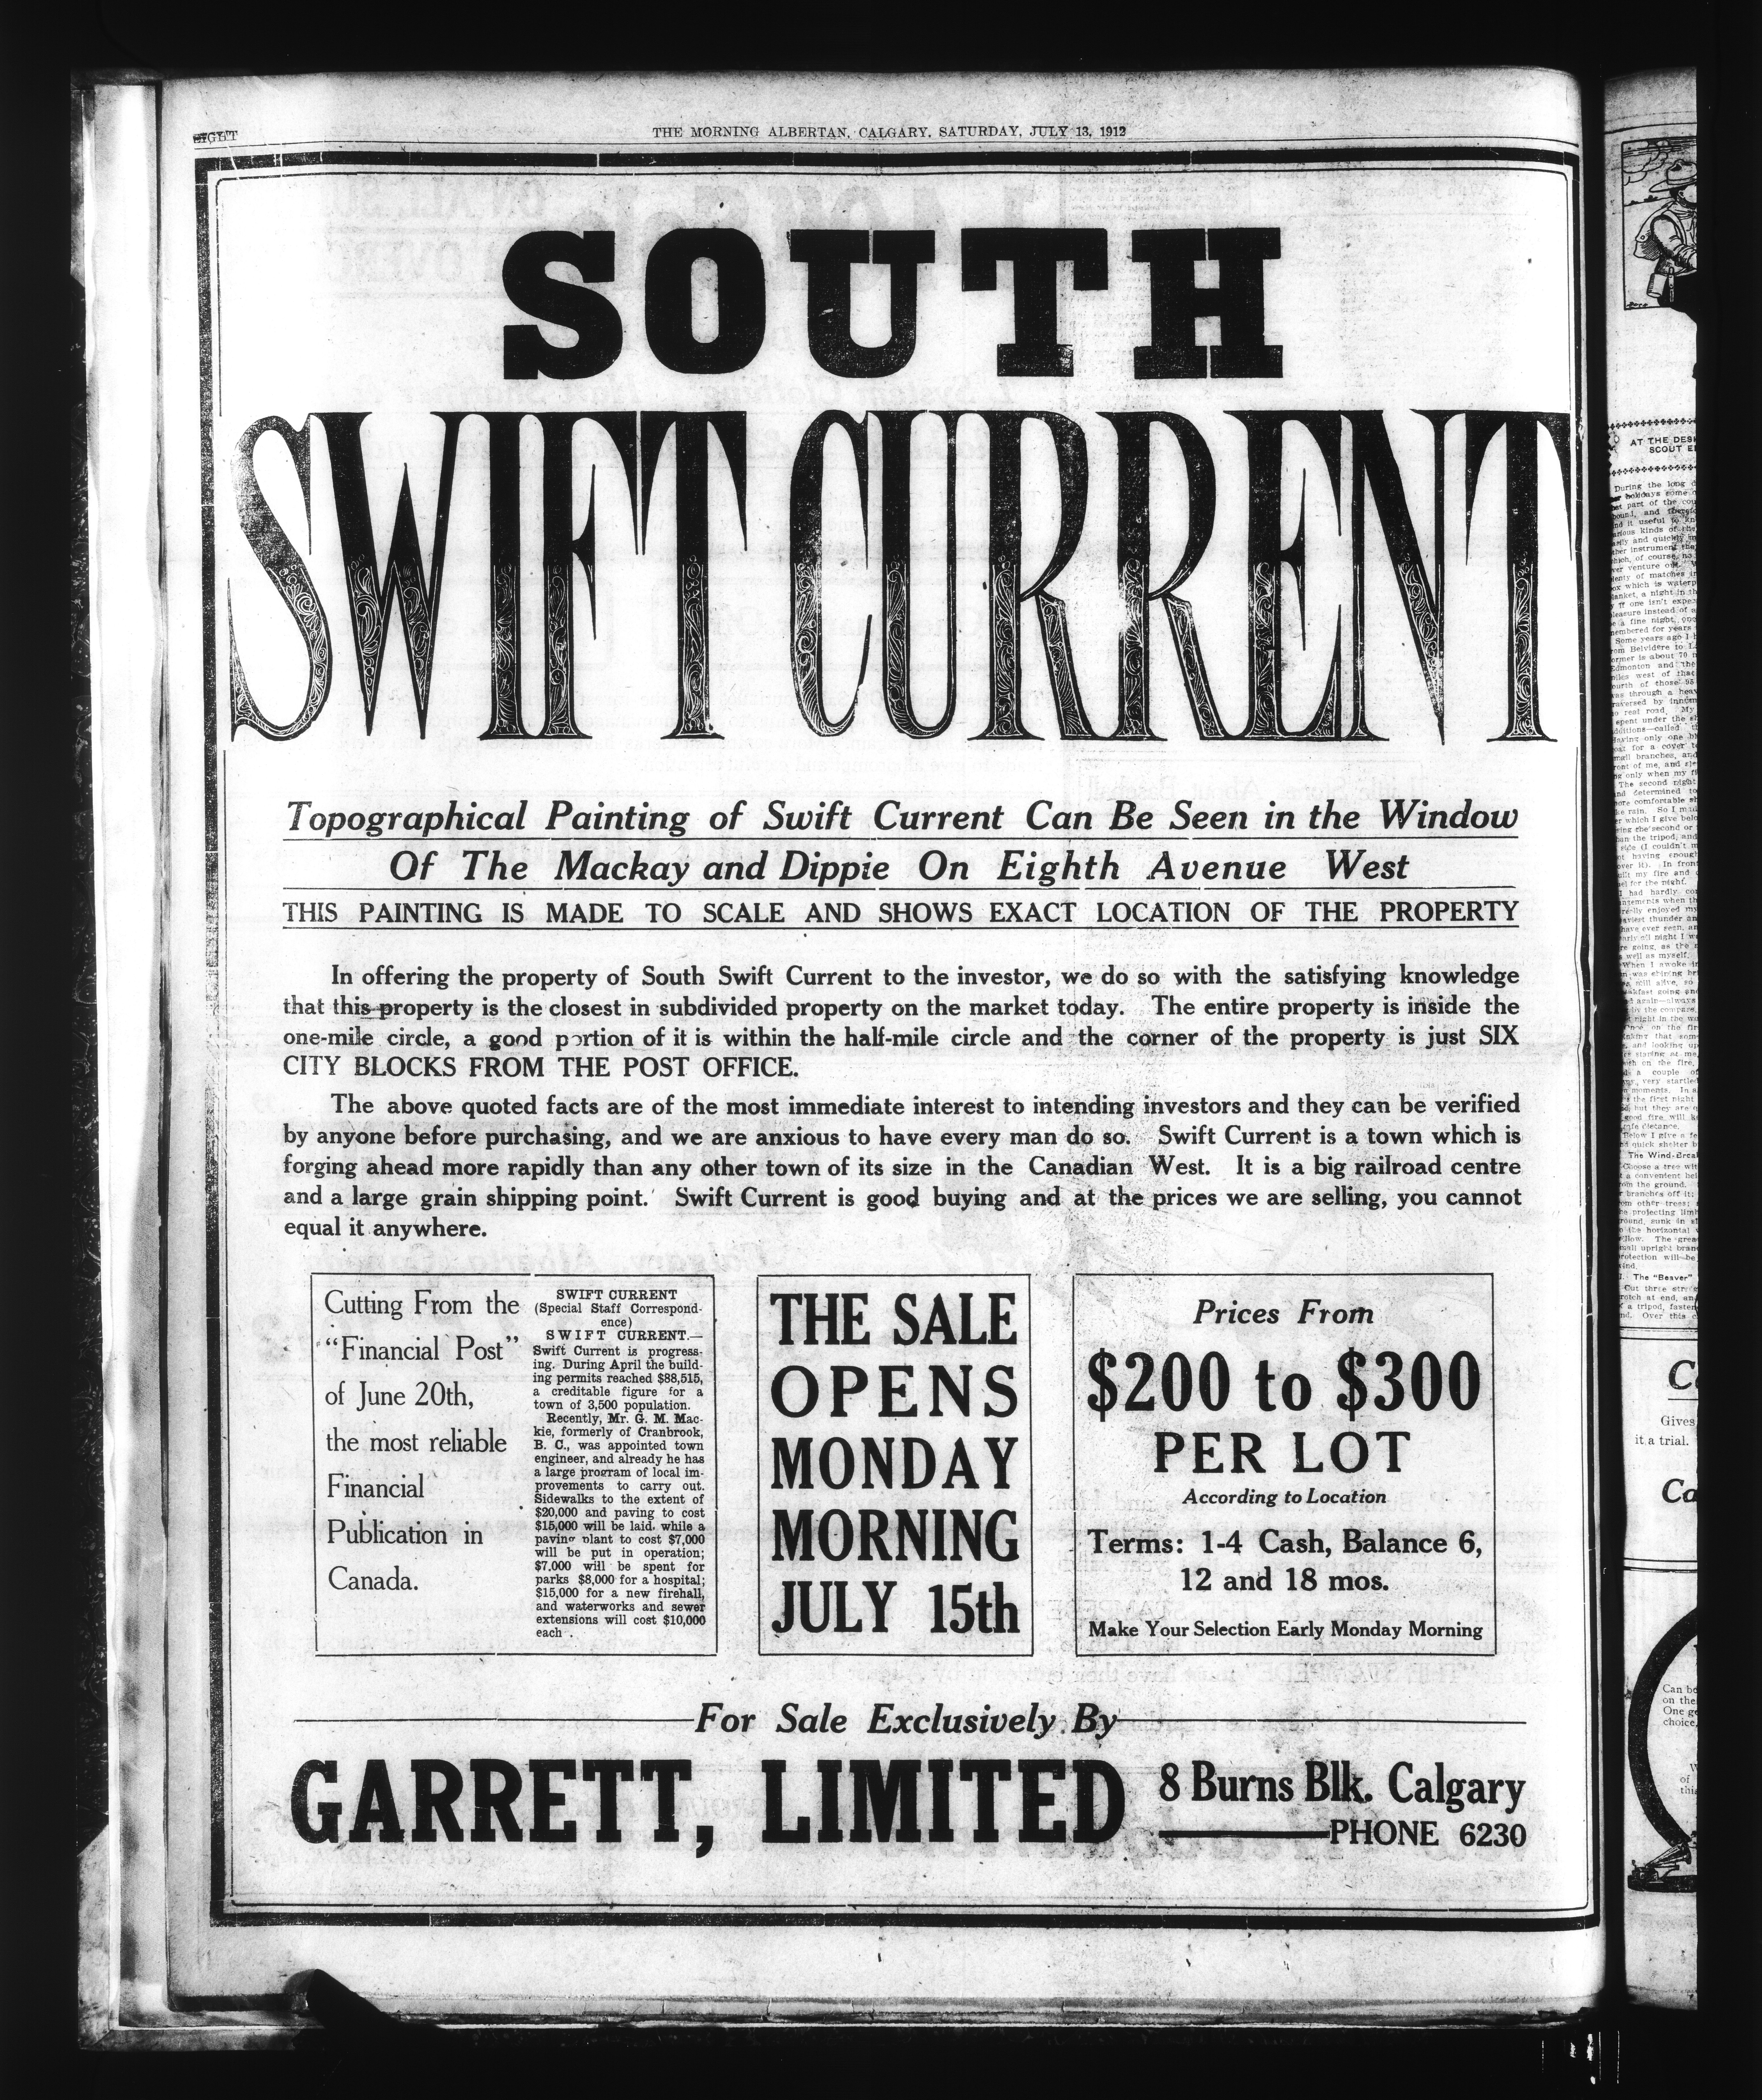 EIGHT
THE MORNING ALBERTAN, CALGARY, SATURDAY, JULY 13, 1912
SOUTH
SWIFT CURRENT
Topographical Painting of Swift Current Can Be Seen in the Window
Of The Mackay and Dippie On Eighth Avenue West
THIS PAINTING IS MADE TO SCALE AND SHOWS EXACT LOCATION OF THE PROPERTY
In offering the property of South Swift Current to the investor, we do so with the satisfying knowledge
that this property is the closest in subdivided property on the market today. The entire property is inside the
one-mile circle, a good portion of it is within the half-mile circle and the corner of the property is just SIX
CITY BLOCKS FROM THE POST OFFICE.
The above quoted facts are of the most immediate interest to intending investors and they can be verified
by anyone before purchasing, and we are anxious to have every man do so. Swift Current is a town which is
forging ahead more rapidly than any other town of its size in the Canadian West. It is a big railroad centre
and a large grain shipping point. Swift Current is good buying and at the prices we are selling, you cannot
equal it anywhere.
Cutting From the
"Financial Post"
of June 20th,
the most reliable
Financial
Publication in
Canada.
SWIFT CURRENT
(Special Staff Correspond-
ence)
SWIFT CURRENT.—
Swift Current is progress-
ing. During April the build-
ing permits reached $88,515,
a creditable figure for a
town of 3,500 population.
Recently, Mr. G. M. Mac-
kie, formerly of Cranbrook,
B. C., was appointed town
engineer, and already he has
a large program of local im-
provements to carry out.
Sidewalks to the extent of
$20,000 and paving to cost
$15,000 will be laid, while a
paving plant to cost $7,000
will be put in operation;
$7,000 will be spent for
parks $8,000 for a hospital;
$15,000 for a new firehall,
and waterworks and sewer
extensions will cost $10,000
each.
THE SALE
OPENS
MONDAY
MORNING
JULY 15th
Prices From
$200 to $300
PER LOT
According to Location
Terms: 1-4 Cash, Balance 6,
12 and 18 mos.
Make Your Selection Early Monday Morning
For Sale Exclusively By
GARRETT, LIMITED
8 Burns Blk. Calgary
PHONE 6230
AT THE DESK
SCOUT
During the long
holidays some
The Wind-Break
The "Beaver"
Gives
it a trial.
Can be
on the
One
choice,
of